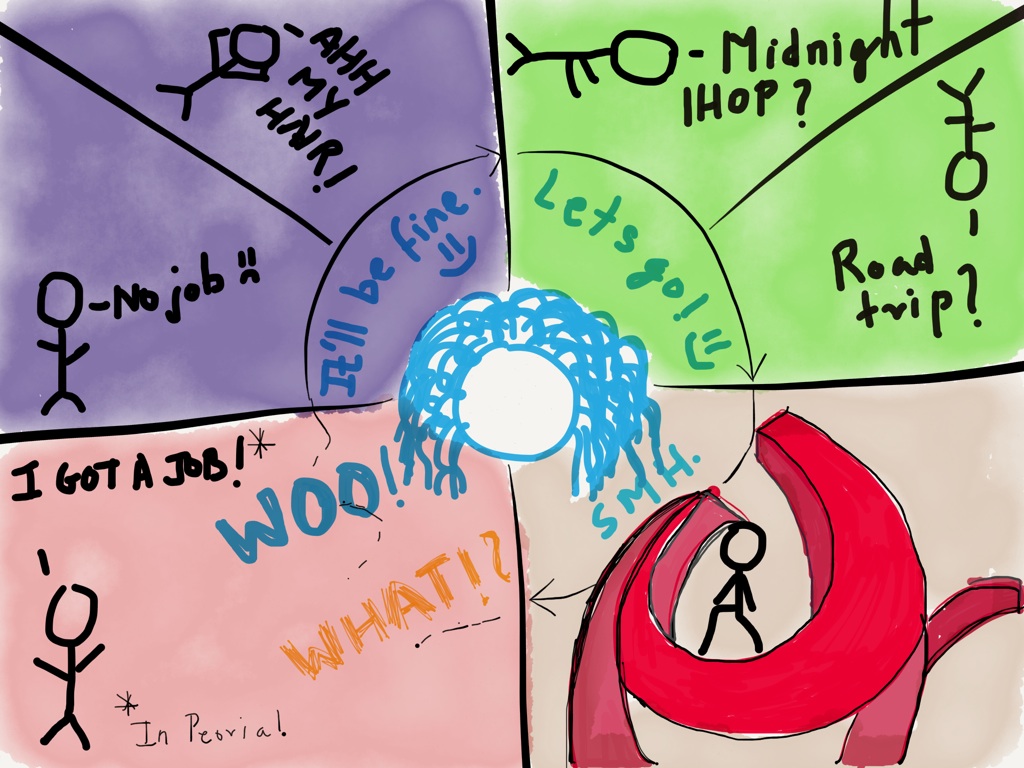 - AHH
MY
HNR!
- No job :(
It'll be fine. :)
- Midnight
IHOP?
Road
trip?
Lets go! :)
I GOT A JOB!*
WOO!
WHAT!?
* In Peoria!
SMH.